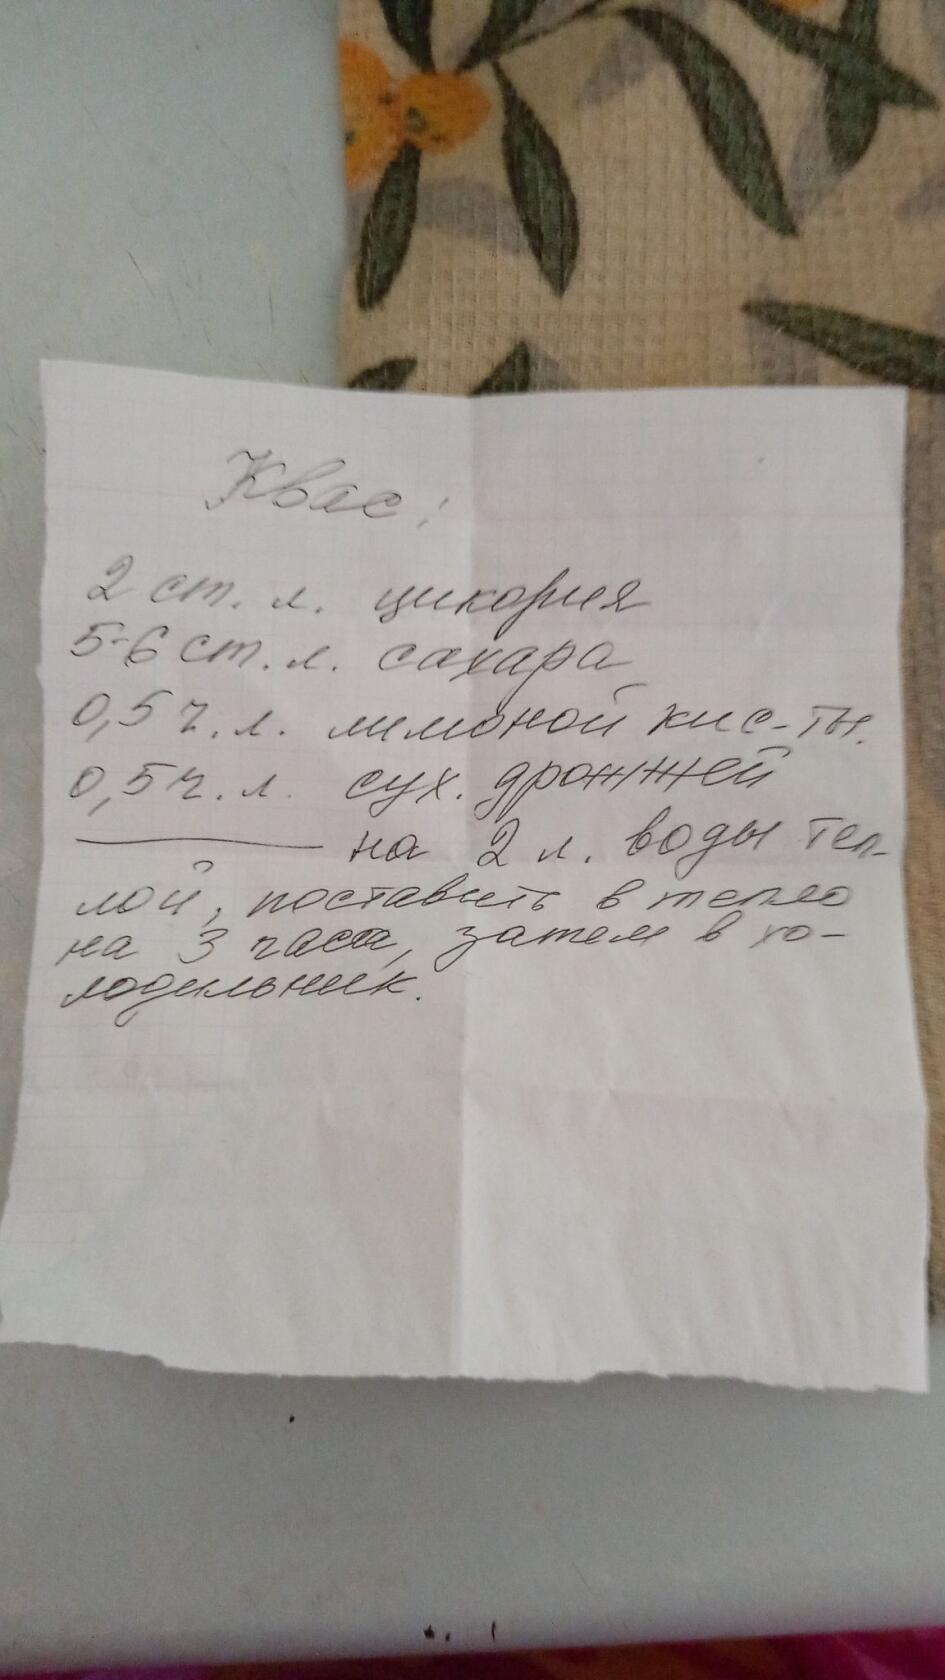 Квас:
2 ст. л. цикория
5-6 ст. л. сахара
0,5 ч. л. лимоной кис-ты.
0,5 ч. л. сух. дрожжей
на 2 л. воды теп-
лой, поставить в тепло
на 3 часа, затем в хо-
лодильник.